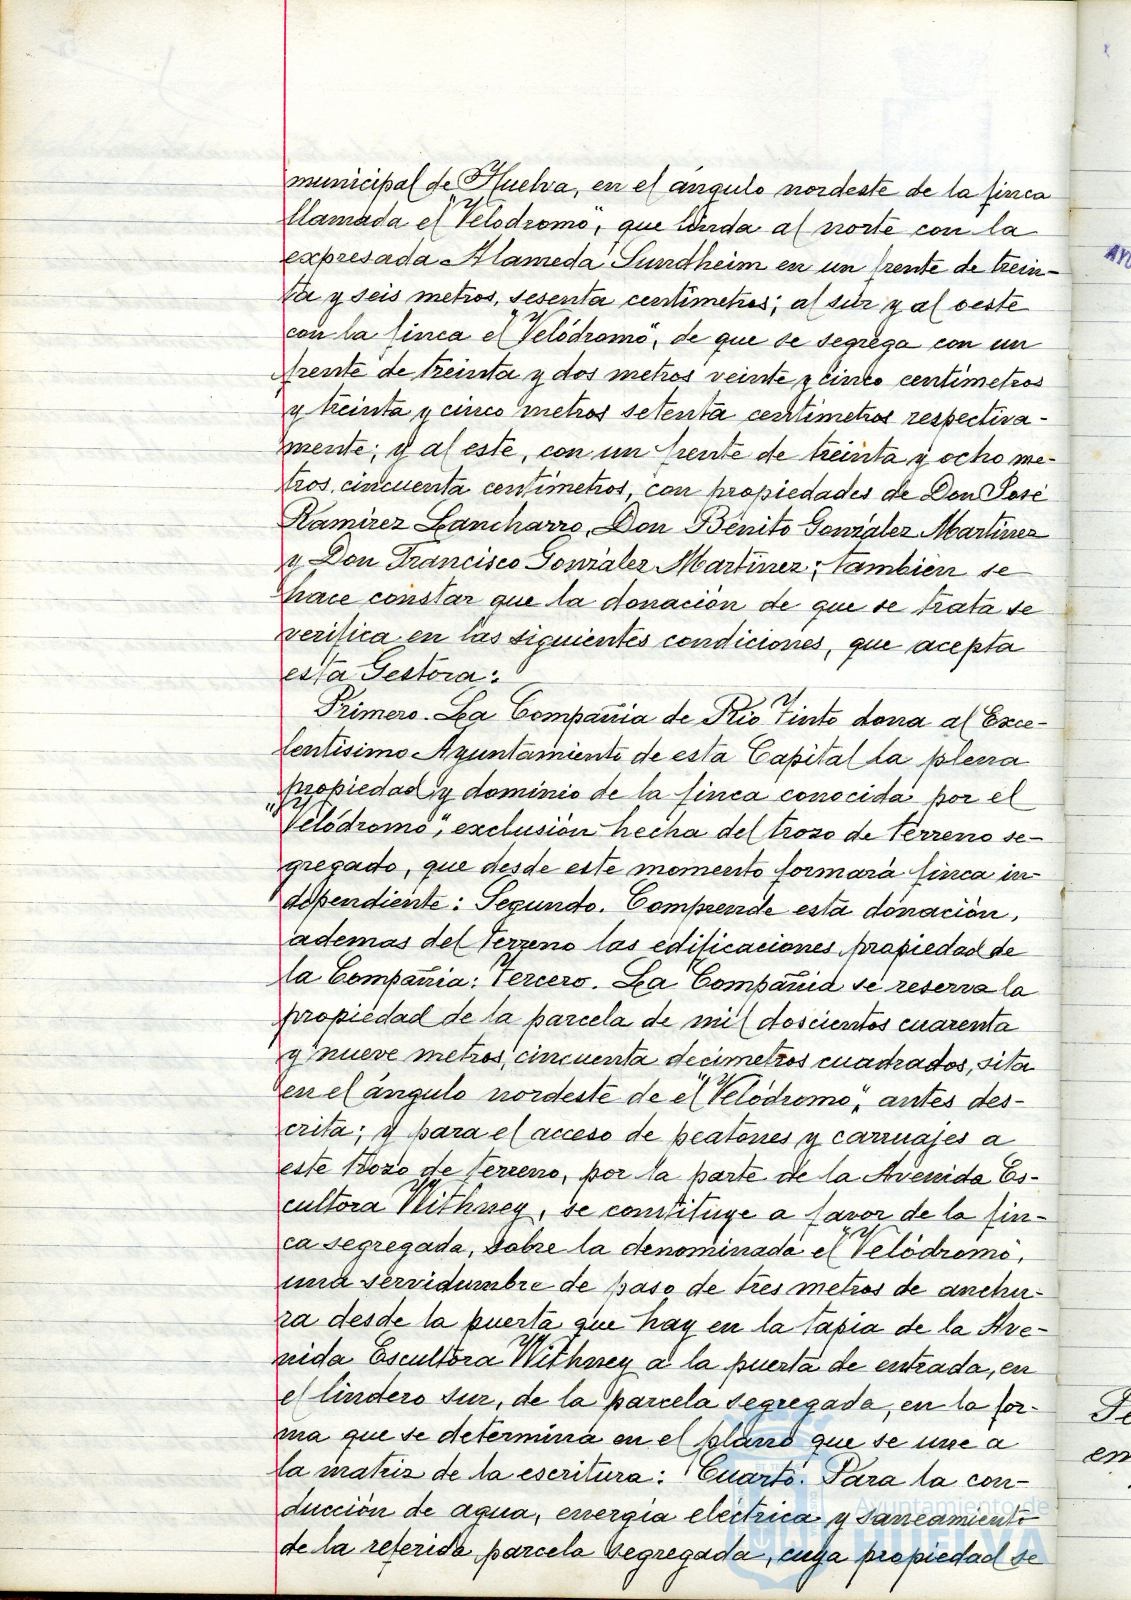 municipal de Huelva, en el ángulo nordeste de la finca
llamada el "Velodromo", que linda al norte con la
expresada Alameda Sundheim en un frente de trein-
ta y seis metros, sesenta centímetros; al sur y al oeste
con la finca el "Velódromo", de que se segrega con un
frente de treinta y dos metros veinte y cinco centímetros
y treinta y cinco metros setenta centímetros respectiva-
mente; y al este, con un frente de treinta y ocho me-
tros, cincuenta centímetros, con propiedades de Don José
Ramírez Lancharro, Don Benito González Martínez
y Don Francisco González Martínez; también se
hace constar que la donación de que se trata se
verifica en las siguientes condiciones, que acepta
esta Gestora:
Primero. La Compañia de Rio Tinto dona al Exce-
lentísimo Ayuntamiento de esta Capital la plena
propiedad y dominio de la finca conocida por el
"Velódromo", exclusión hecha del trozo de terreno se-
gregado, que desde este momento formará finca in-
dependiente: Segundo. Comprende esta donación,
ademas del terreno las edificaciones propiedad de
la Compañia: Tercero. La Compañia se reserva la
propiedad de la parcela de mil doscientos cuarenta
y nueve metros, cincuenta decímetros cuadrados, sita
en el ángulo nordeste de el "Velódromo", antes des-
crita; y para el acceso de peatones y carruajes a
este trozo de terreno, por la parte de la Avenida Es-
cultora Withney, se constituye a favor de la fin-
ca segregada, sobre la denominada el "Velódromo",
una servidumbre de paso de tres metros de anchu-
ra desde la puerta que hay en la tapia de la Ave-
nida Escultora Withney a la puerta de entrada, en
el lindero sur, de la parcela segregada, en la for-
ma que se determina en el plano que se une a
la matriz de la escritura: Cuarto. Para la con-
ducción de agua, energía eléctrica y saneamiento
de la referida parcela segregada, cuya propiedad se
Ayuntamiento de
HUELVA